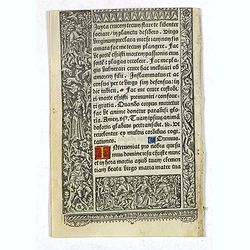 Juxta crucem tecum stare te libenter
sociare / in planctu desidero. Virgo
virginum preclara michi iam non sis
amara fac me tecum plangere. Fac ut
portem christi mortem passionis eius
et plagas recolere. Fac me plagis
vulnerari cruce hac inebriari ob
amorem filii. Inflammatus et ac
census per te virgo sim defensus / in
die iudicii. Fac me cruce custodi
ri morte christi premuniri / confove
ri gratia. Quando corpus morietur
fac ut anime donetur paradisi glo
ria. Amen. Tuam ipsius animam
doloris gladius pertransibit. Ut
revelentur ex multis cordibus cogi
tationes. Oremus.
Interveniat pro nobis quesu
mus domine iesu christe nunc
et in hora mortis apud tuam clemen
tiam beata virgo maria mater tua